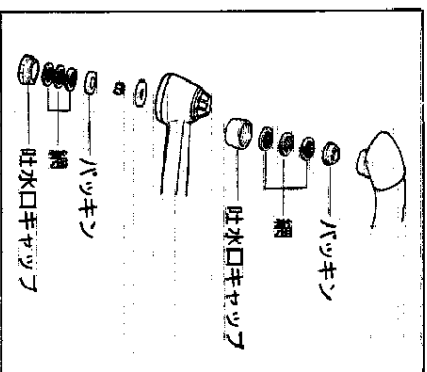 パッキン
網
吐水口キャップ
パッキン
網
吐水口キャップ